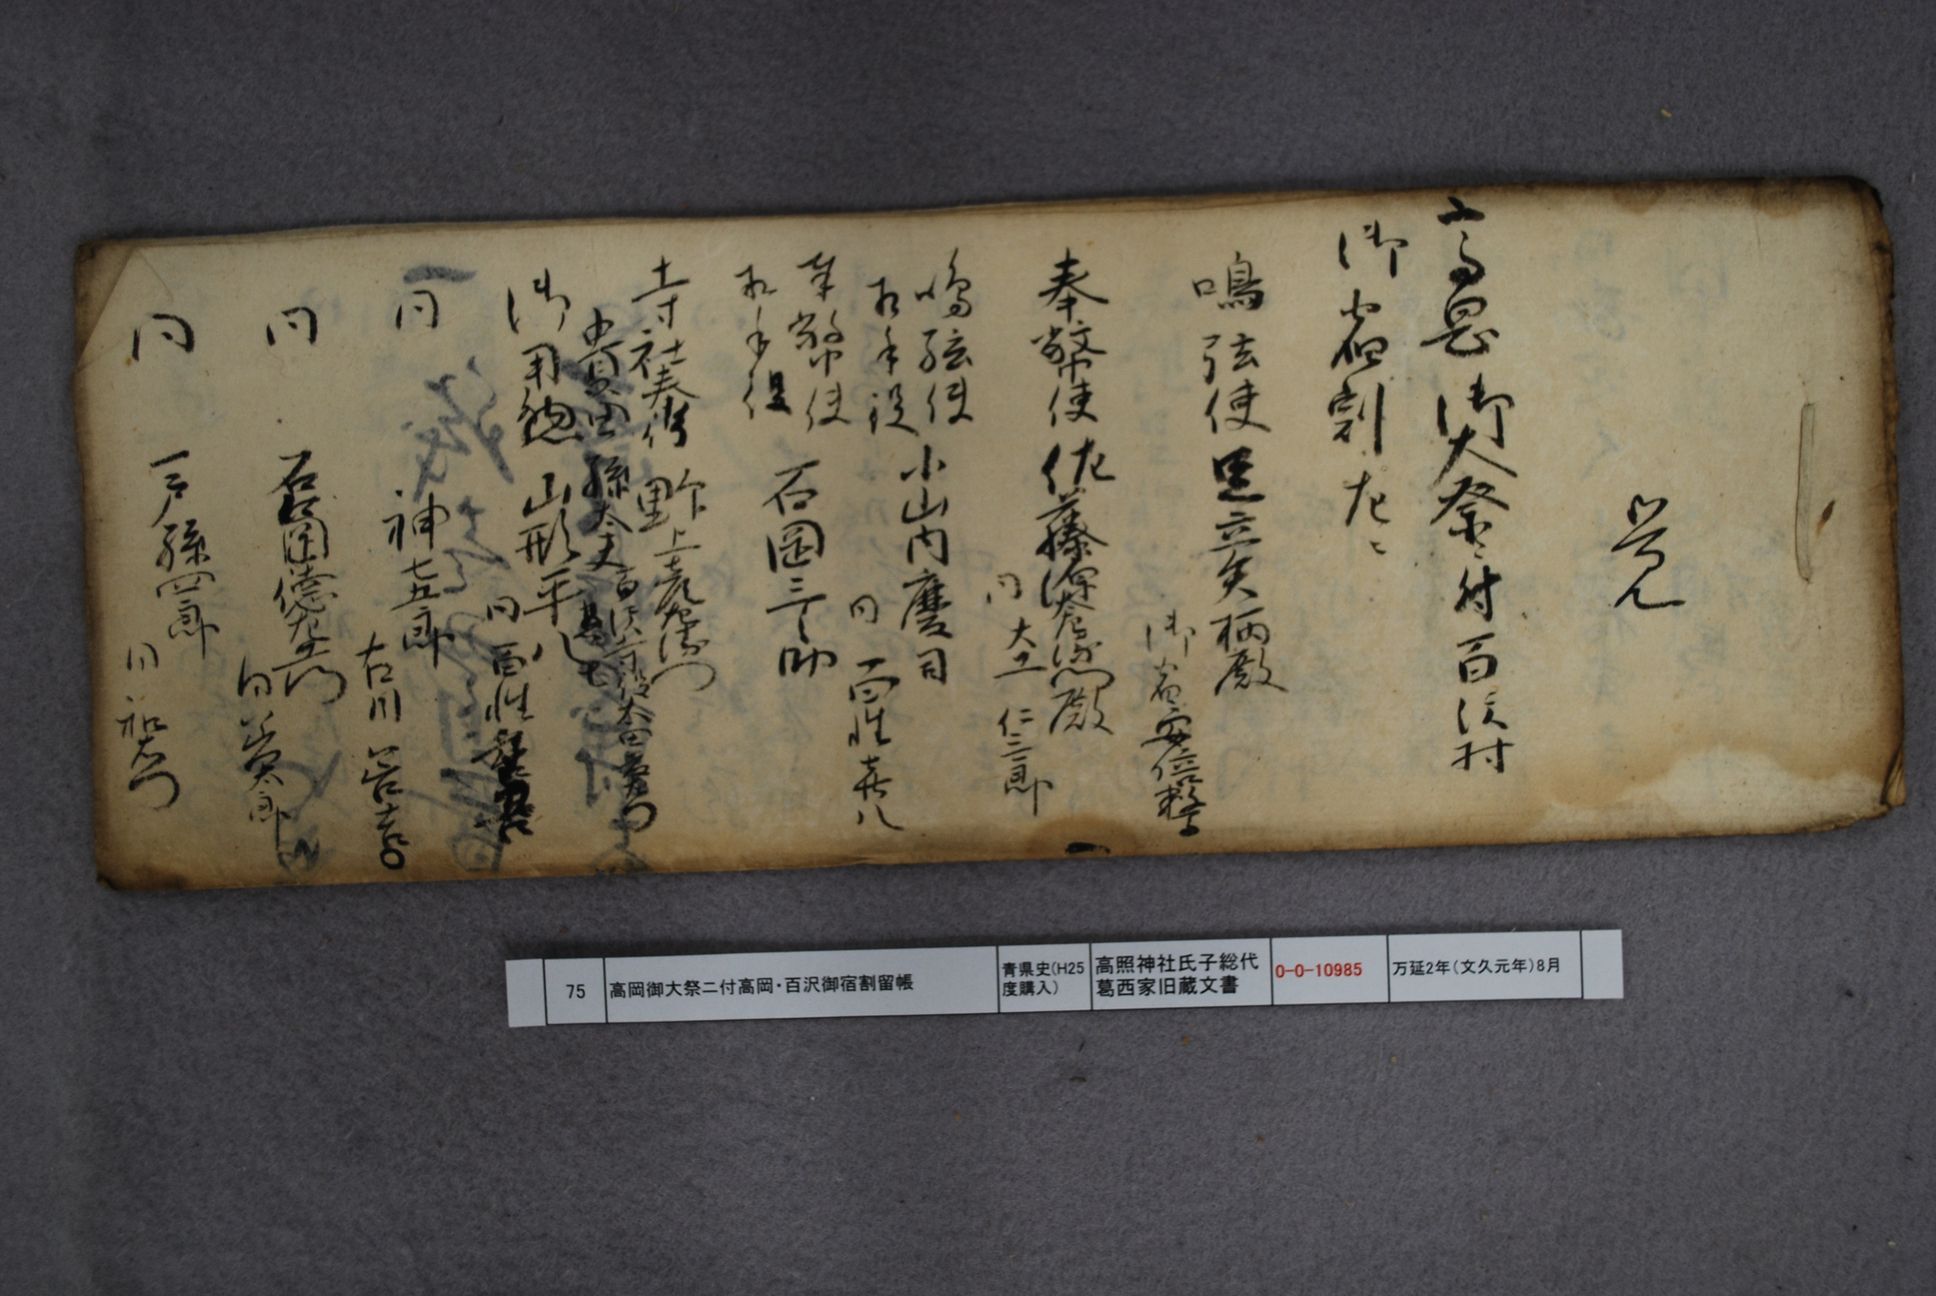 覚
高岡御大祭ニ付百沢村
御宿割左ニ
鳴弦使 足立矢柄殿
御宿 安倍
奉幣使 佐藤源太左衛門殿
同 大工 仁三郎
鳴弦使
相手役 小山内慶司
同 百性 喜八
奉幣使
相手役 石岡三之助
寺社奉行
野上彦左衛門
御用懸 山形平八
同 百性
同 神七五郎
古川 善吉
同 石岡徳左衛門
同 萬太郎
同 一戸孫四郎
同
75
高岡御大祭ニ付高岡・百沢御宿割留帳
青県史(H25
度購入)
高照神社氏子総代
葛西家旧蔵文書
0-0-10985
万延2年(文久元年)8月